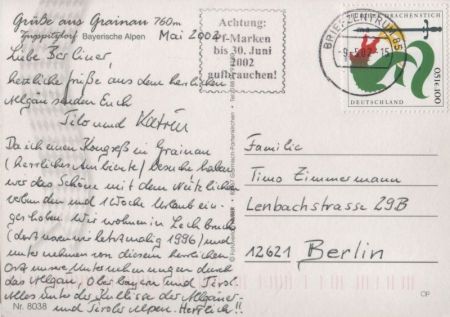 Grüße aus Grainau 760m
Zugspitzdorf Bayerische Alpen
Mai 2002
Liebe Berliner,
herzliche Grüße aus dem herrlichen
Allgäu senden Euch
Tilo und Katrin
Da ich einen Kongreß in Grainau
(herrliches Ambiente) besucht habe,
wir das Schöne mit dem Nützlichen
verbunden und 1 Woche Urlaub
geschoben. Wir wohnen in Lechbruck
(dort waren wir letztmalig 1996) und
unternehmen von diesem herrlichen
Ort unsere Unternehmungen durch
das Allgäu, Oberbayern und Tirol.
Alles unter der Kulisse der Allgäuer
und Tiroler Alpen. Herrlich!!
Nr. 8038
Achtung:
Pf-Marken
bis 30. Juni
2002
aufbrauchen!
BRIEFZENTRUM 86
-9.-5.02-15
DRACHENSTICH
DEUTSCHLAND
100
Familie
Timo Zimmermann
Lenbachstrasse 29B
12621 Berlin